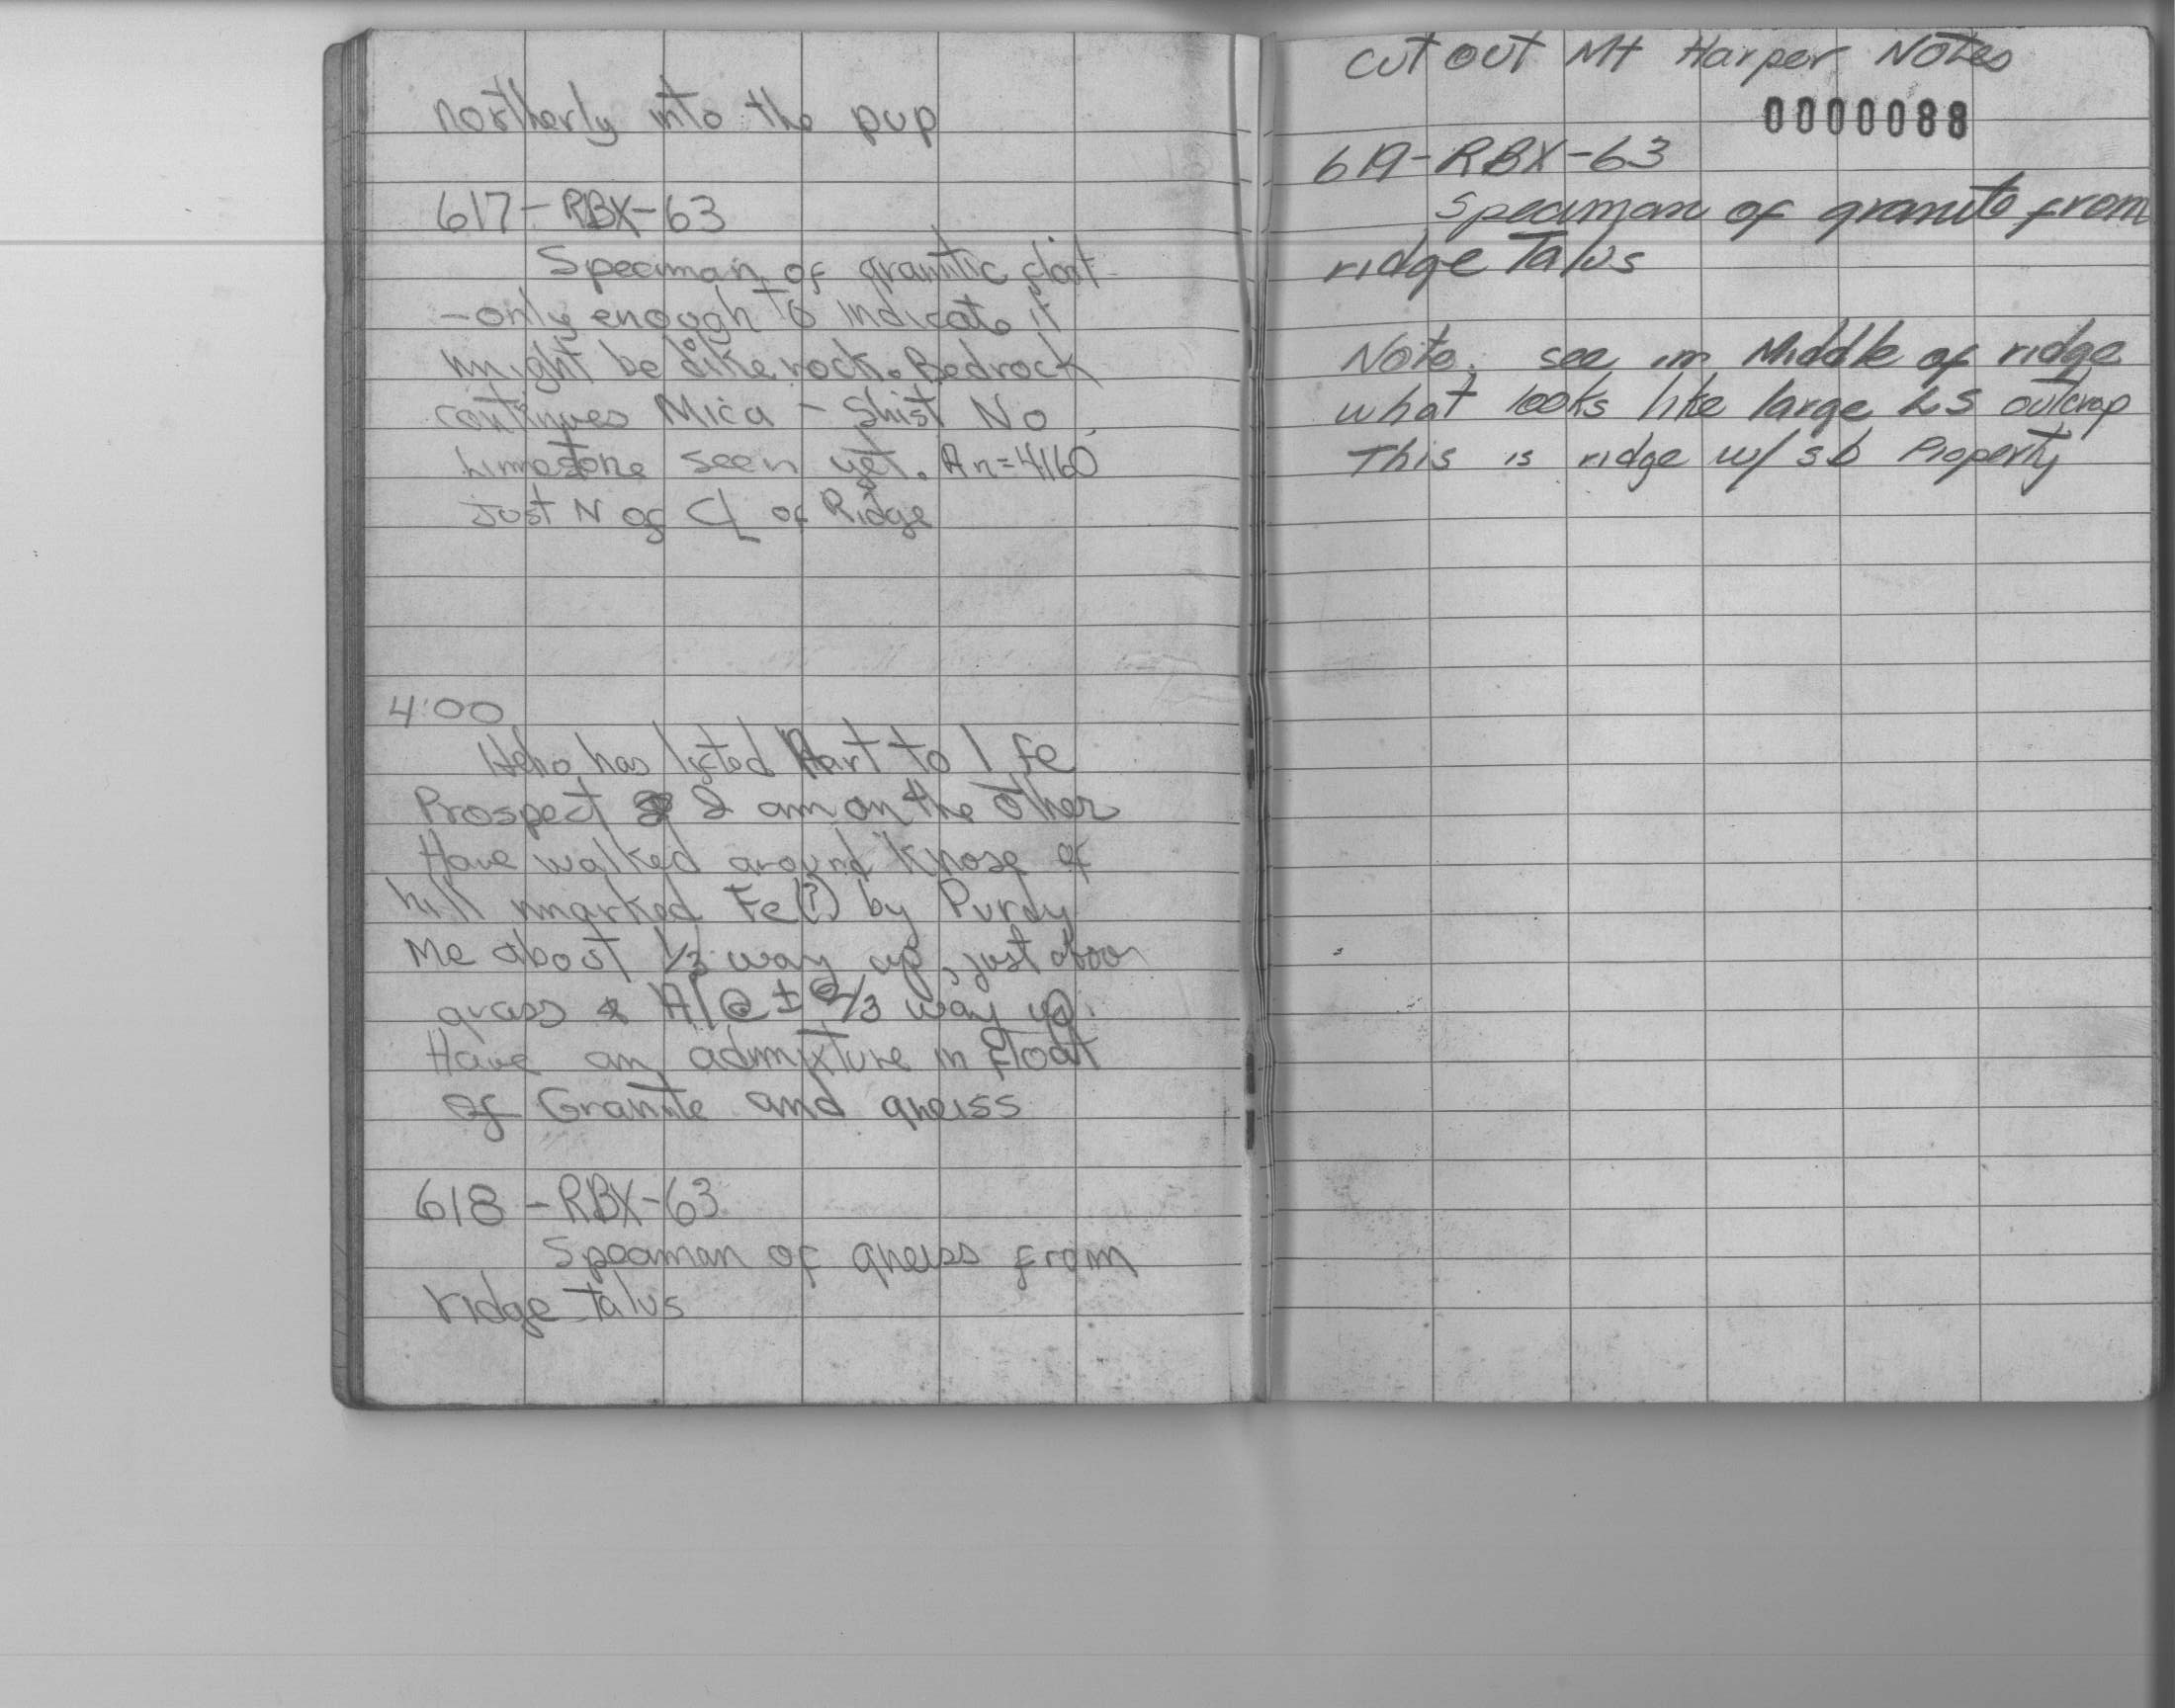 northerly into the pup
617-RBX-63
Speciman of granitic float
-only enough to indicate it
might be dike rock. Bedrock
continues Mica - Shist No
Limestone seen yet. An=4160'
Just N of CL of Ridge
4:00
Helio has listed Hart to 1 Fe
Prospect & I am on the other
Have walked around Knose of
hill marked Fe(?) by Purdy
Me about 1/3 way up, just above
grass & Al @ ± 2/3 way up.
Have an admixture in float
of Granite and gneiss
618-RBX-63
Speciman of gneiss from
ridge talus
Cut out Mt Harper Notes
0000088
619-RBX-63
Speciman of granite from
ridge Talus
Note: see in Middle of ridge
what looks like large LS outcrop
This is ridge w/ sb Property